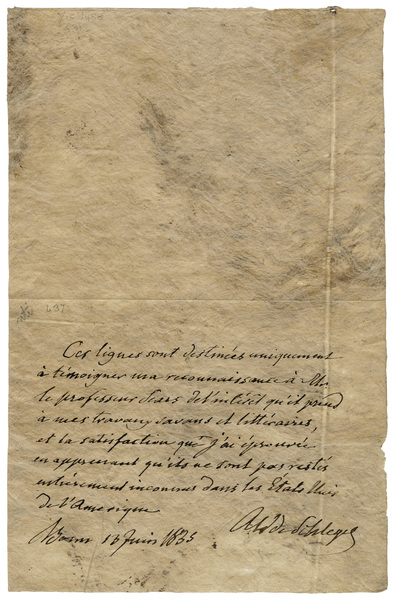 Ces lignes sont destinées uniquement
à témoigner ma reconnaissance à Mr.
le professeur Sears de l'intérêt qu'il prend
à mes travaux savans et littéraires,
et la satisfaction que j'ai éprouvée
en apprenant qu'ils ne sont pas restés
entièrement inconnus dans les États Unis
de l'Amerique
Bonn 13 Juin 1835
de Schlegel